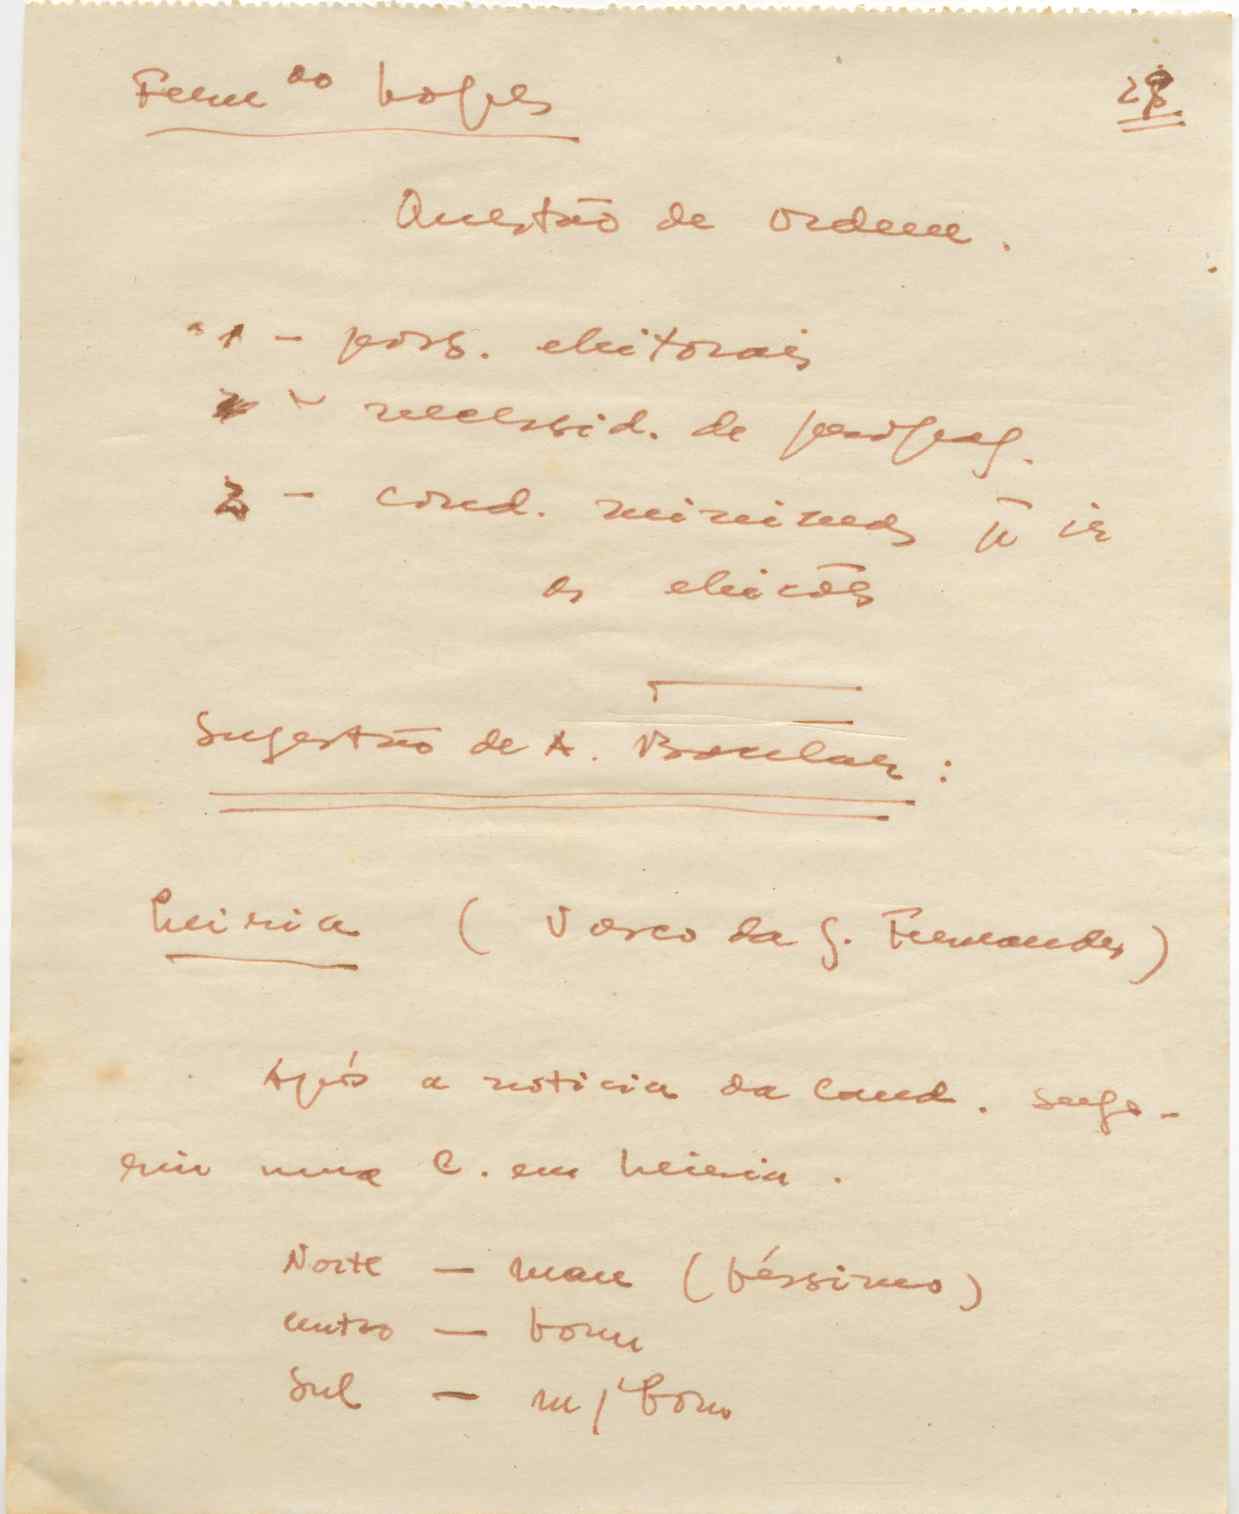 Fern ao Lopes
Questão de ordem.
1 - poss. eleitorais
- necessid. de propag.
2 - cond. minimas p ir
as eleicões
Sugestão de A. :
Leiria ( Vasco da G. Fernandes)
Após a noticia da Cand. suge-
riu uma C. em Leiria.
Norte - mau (péssimo)
Centro - bom
Sul - m/ bom